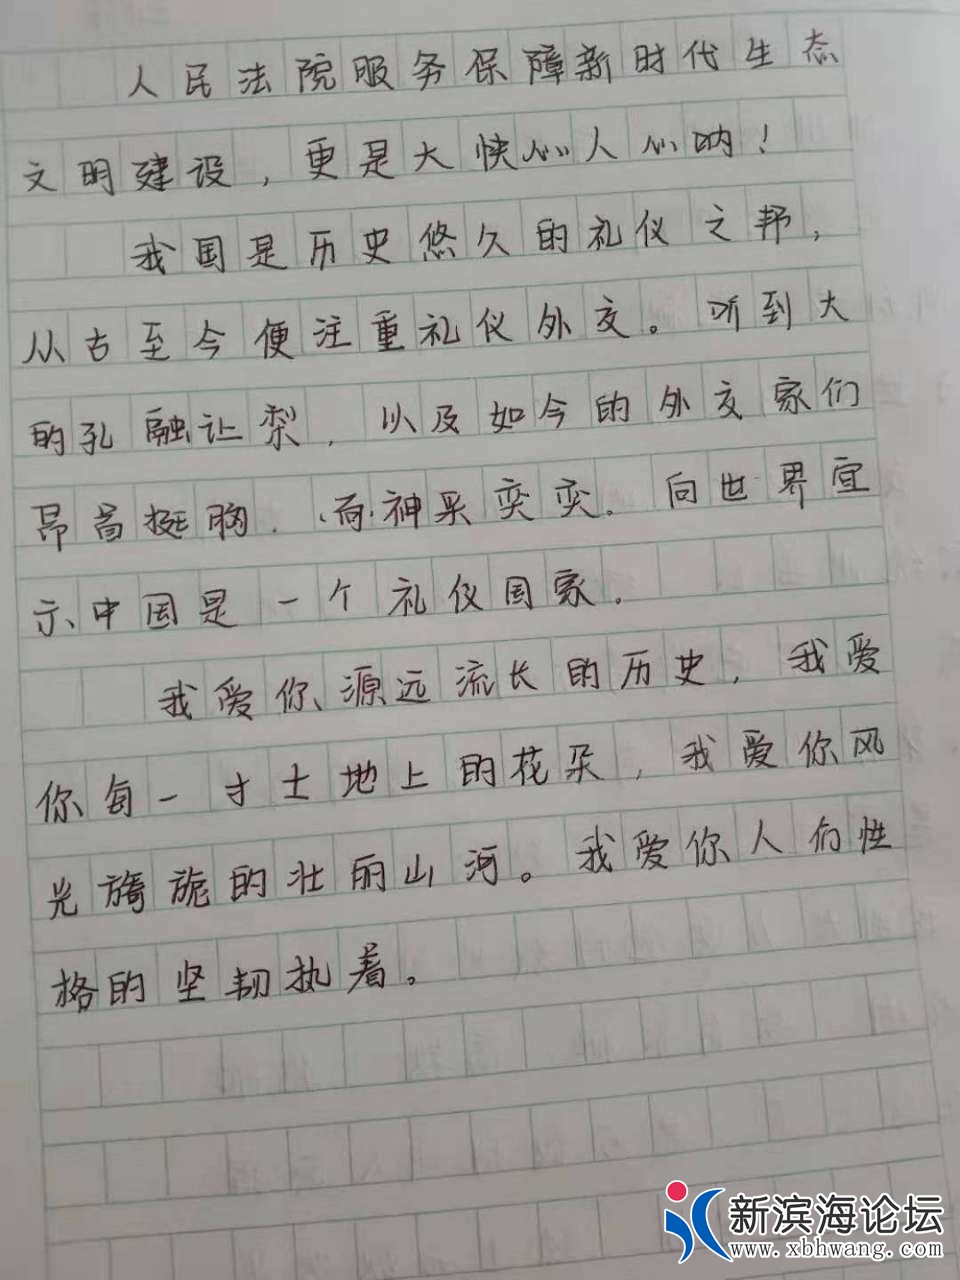 人民法院服务保障新时代生态
文明建设，更是大快心人心呐！
我国是历史悠久的礼仪之邦，
从古至今便注重礼仪外交。听到大
的孔融让梨，以及如今的外交家们
昂首挺胸，而神采奕奕．向世界宣
示中国是一个礼仪国家．
我爱你源远流长的历史，我爱
你每一寸土地上的花朵，我爱你风
光旖旎的壮丽山河。我爱你人们性
格的坚韧执着。
新滨海论坛
www.xbhwang.com